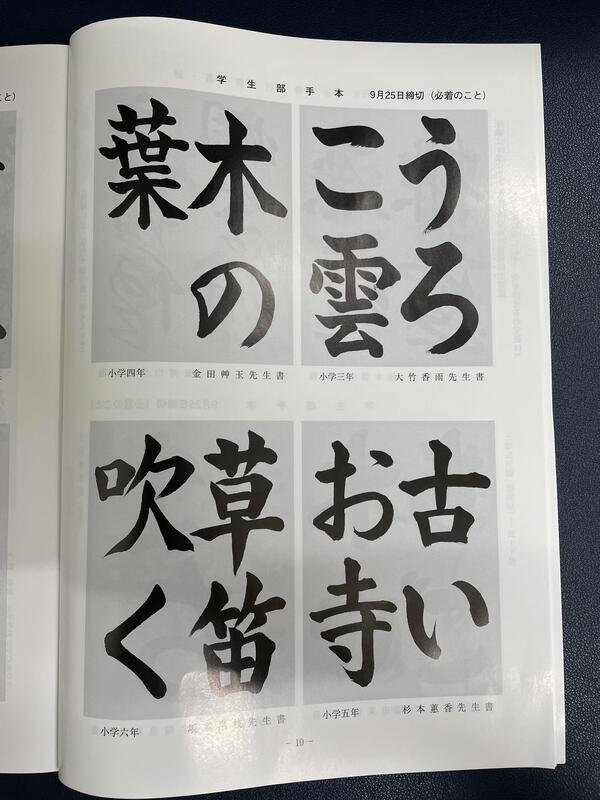 こと）
学生部手本 9月25日締切（必着のこと）
うろ
こ雲
小学三年 大竹香雨先生書
木の
葉
小学四年 金田艸玉先生書
古い
お寺
小学五年 杉本蕙香先生書
草笛
吹く
小学六年 先生書
− 10 −